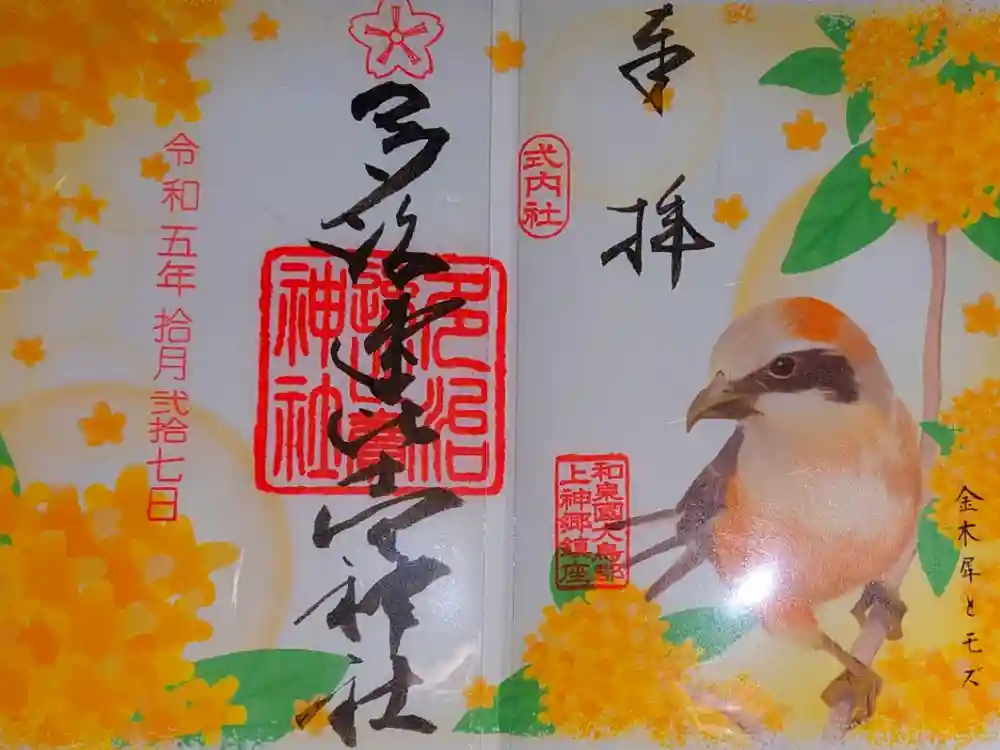 奉拝
式内社
和泉國大鳥郡
上神郷鎮座
金木犀とモズ
多治速比売神社
多治
速比売
神社
令和五年拾月弐拾七日